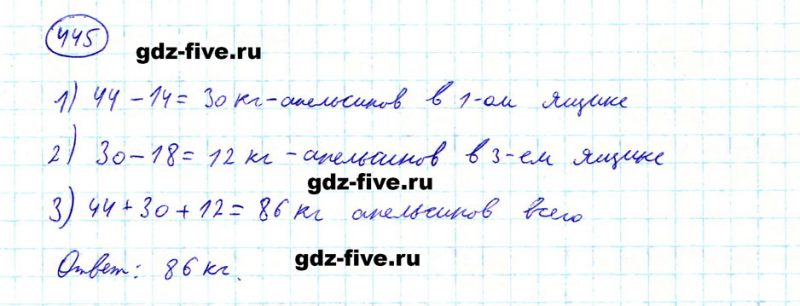 445
gdz-five.ru
1) 44 - 14 = 30 кг - апельсинов в 1-ом ящике
2) 30 - 18 = 12 кг - апельсинов в 3-ем ящике
gdz-five.ru
3) 44 + 30 + 12 = 86 кг апельсинов всего
Ответ: 86 кг.
gdz-five.ru